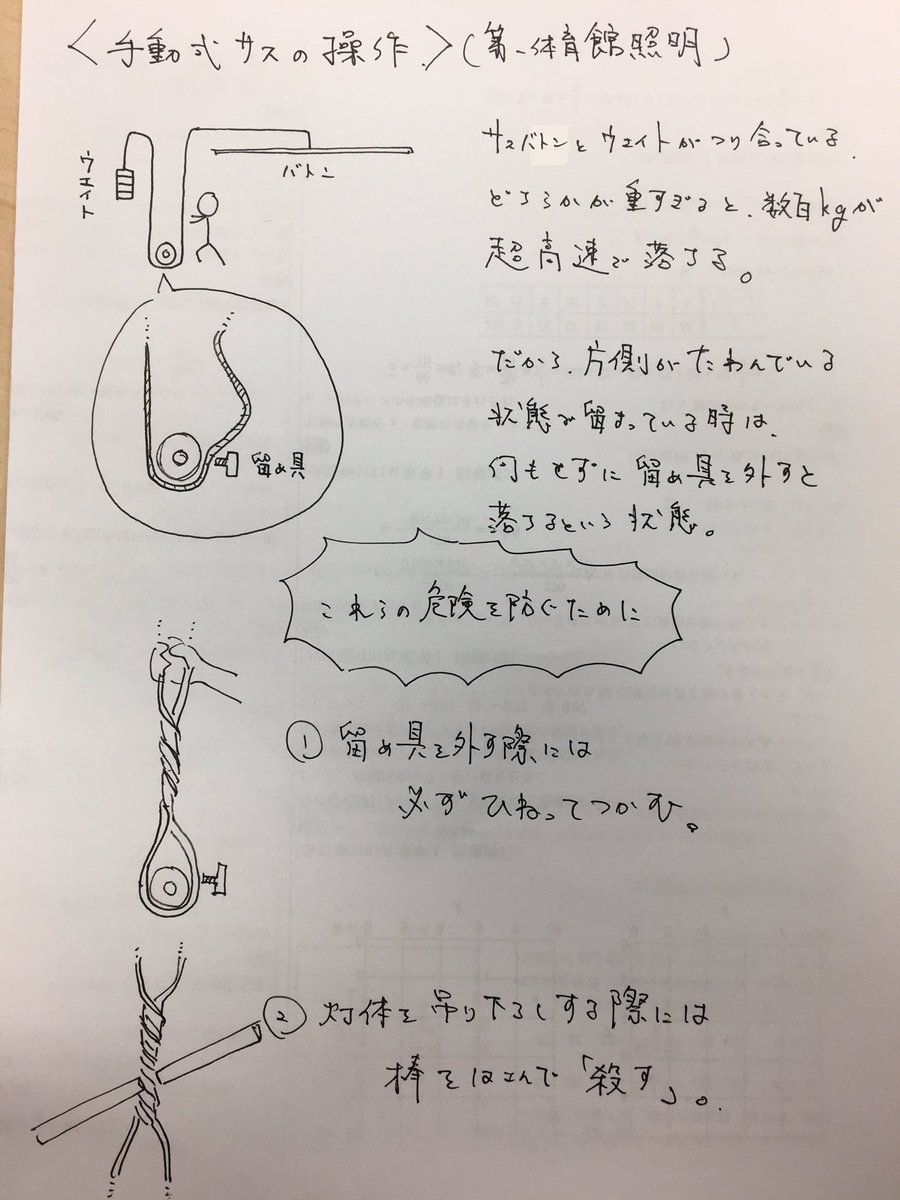 〈手動式サスの操作〉(第一体育館照明)
ウエイト
バトン
サスバトンとウエイトがつり合っている.
どちらかが重すぎると、数百kgが
超高速で落ちる。
留め具
だから、片側がたわんでいる
状態で留まっている時は、
何もせずに留め具を外すと
落ちるという状態。
これらの危険を防ぐために
① 留め具を外す際には
必ずひねってつかむ。
② 灯体を吊り下ろしする際には
棒をはさんで「殺す」。